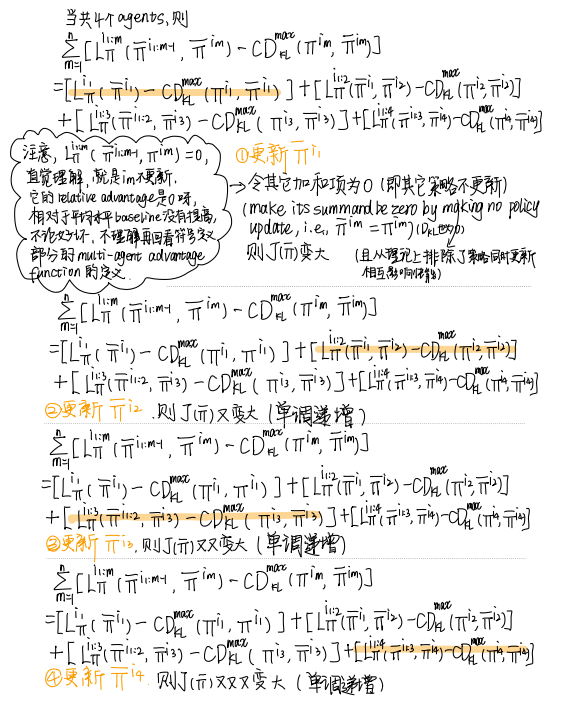 当共4个agents,则
$\sum_{m=1}^{n}[L_{\pi}^{i_{1:m}}(\bar{\pi}^{i_{1:m-1}}, \bar{\pi}^{i_m}) - CD_{KL}^{max}(\pi^{i_m}, \bar{\pi}^{i_m})]$
$=[L_{\pi}^{i_1}(\bar{\pi}^{i_1}) - CD_{KL}^{max}(\pi^{i_1}, \bar{\pi}^{i_1})] + [L_{\pi}^{i_{1:2}}(\bar{\pi}^{i_1}, \bar{\pi}^{i_2}) - CD_{KL}^{max}(\pi^{i_2}, \bar{\pi}^{i_2})]$
$+ [L_{\pi}^{i_{1:3}}(\bar{\pi}^{i_{1:2}}, \bar{\pi}^{i_3}) - CD_{KL}^{max}(\pi^{i_3}, \bar{\pi}^{i_3})] + [L_{\pi}^{i_{1:4}}(\bar{\pi}^{i_{1:3}}, \bar{\pi}^{i_4}) - CD_{KL}^{max}(\pi^{i_4}, \bar{\pi}^{i_4})]$
注意, $L_{\pi}^{i_{1:m}}(\bar{\pi}^{i_{1:m-1}}, \pi^{i_m}) = 0$,
直觉理解,就是im不更新,
它的relative advantage是0呀,
相对于平均水平baseline没有提高,
不论好坏,不理解再回看符号定义
部分的multi-agent advantage
function的定义.
①更新 $\bar{\pi}^{i_1}$
→ 令其它加和项为0 (即其它策略不更新)
(make its summand be zero by making no policy
update, i.e., $\bar{\pi}^{i_m} = \pi^{i_m}$) ($D_{KL}$也为0)
则 $J(\bar{\pi})$ 变大 (且从理论上排除了策略同时更新
相互影响)
$\sum_{m=1}^{n}[L_{\pi}^{i_{1:m}}(\bar{\pi}^{i_{1:m-1}}, \bar{\pi}^{i_m}) - CD_{KL}^{max}(\pi^{i_m}, \bar{\pi}^{i_m})]$
$=[L_{\pi}^{i_1}(\bar{\pi}^{i_1}) - CD_{KL}^{max}(\pi^{i_1}, \bar{\pi}^{i_1})] + [L_{\pi}^{i_{1:2}}(\bar{\pi}^{i_1}, \bar{\pi}^{i_2}) - CD_{KL}^{max}(\pi^{i_2}, \bar{\pi}^{i_2})]$
$+ [L_{\pi}^{i_{1:3}}(\bar{\pi}^{i_{1:2}}, \bar{\pi}^{i_3}) - CD_{KL}^{max}(\pi^{i_3}, \bar{\pi}^{i_3})] + [L_{\pi}^{i_{1:4}}(\bar{\pi}^{i_{1:3}}, \bar{\pi}^{i_4}) - CD_{KL}^{max}(\pi^{i_4}, \bar{\pi}^{i_4})]$
②更新 $\bar{\pi}^{i_2}$, 则 $J(\bar{\pi})$ 又变大 (单调递增)
$\sum_{m=1}^{n}[L_{\pi}^{i_{1:m}}(\bar{\pi}^{i_{1:m-1}}, \bar{\pi}^{i_m}) - CD_{KL}^{max}(\pi^{i_m}, \bar{\pi}^{i_m})]$
$=[L_{\pi}^{i_1}(\bar{\pi}^{i_1}) - CD_{KL}^{max}(\pi^{i_1}, \bar{\pi}^{i_1})] + [L_{\pi}^{i_{1:2}}(\bar{\pi}^{i_1}, \bar{\pi}^{i_2}) - CD_{KL}^{max}(\pi^{i_2}, \bar{\pi}^{i_2})]$
$+ [L_{\pi}^{i_{1:3}}(\bar{\pi}^{i_{1:2}}, \bar{\pi}^{i_3}) - CD_{KL}^{max}(\pi^{i_3}, \bar{\pi}^{i_3})] + [L_{\pi}^{i_{1:4}}(\bar{\pi}^{i_{1:3}}, \bar{\pi}^{i_4}) - CD_{KL}^{max}(\pi^{i_4}, \bar{\pi}^{i_4})]$
③更新 $\bar{\pi}^{i_3}$, 则 $J(\bar{\pi})$ 又又变大 (单调递增)
$\sum_{m=1}^{n}[L_{\pi}^{i_{1:m}}(\bar{\pi}^{i_{1:m-1}}, \bar{\pi}^{i_m}) - CD_{KL}^{max}(\pi^{i_m}, \bar{\pi}^{i_m})]$
$=[L_{\pi}^{i_1}(\bar{\pi}^{i_1}) - CD_{KL}^{max}(\pi^{i_1}, \bar{\pi}^{i_1})] + [L_{\pi}^{i_{1:2}}(\bar{\pi}^{i_1}, \bar{\pi}^{i_2}) - CD_{KL}^{max}(\pi^{i_2}, \bar{\pi}^{i_2})]$
$+ [L_{\pi}^{i_{1:3}}(\bar{\pi}^{i_{1:2}}, \bar{\pi}^{i_3}) - CD_{KL}^{max}(\pi^{i_3}, \bar{\pi}^{i_3})] + [L_{\pi}^{i_{1:4}}(\bar{\pi}^{i_{1:3}}, \bar{\pi}^{i_4}) - CD_{KL}^{max}(\pi^{i_4}, \bar{\pi}^{i_4})]$
④更新 $\bar{\pi}^{i_4}$. 则 $J(\bar{\pi})$ 又又又变大 (单调递增)